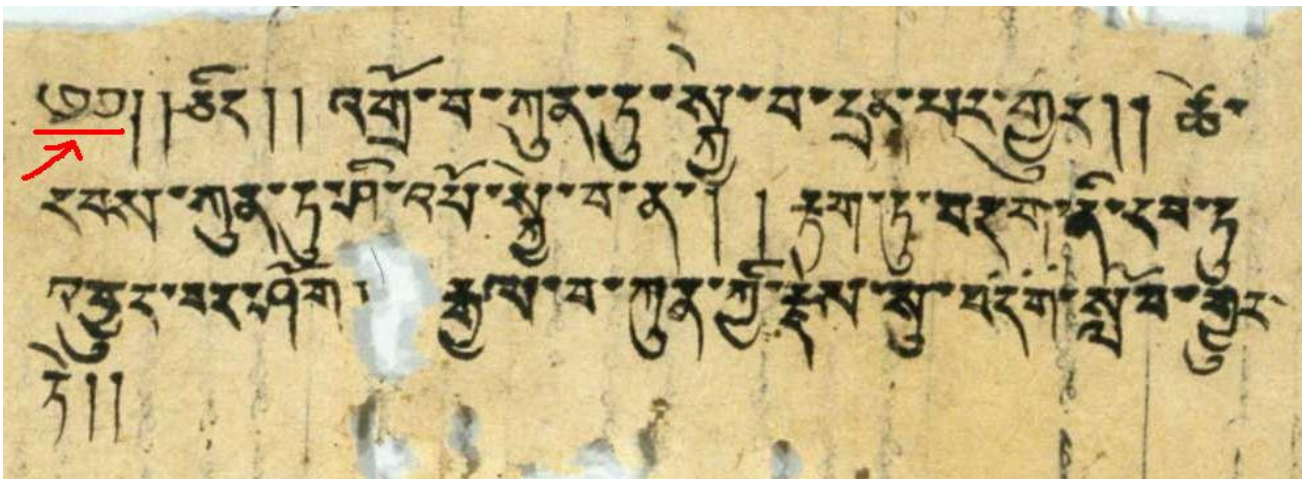 ༧༠། །ཅིང། ། འགྲོ་བ་ཀུན་ཏུ་སྐྱེ་བ་དྲན་པར་གྱུར། ། ཚེ་
རབས་ཀུན་ཏུ་ཤི་འཕོ་སྐྱེ་བ་ན་། ། རྟག་ཏུ་བདག་ནི་རབ་ཏུ་
འབྱུང་བར་ཤོག རྒྱལ་བ་ཀུན་ཀྱི་རྗེས་སུ་བདག་སློབ་གྱུར་
ཏེ། །